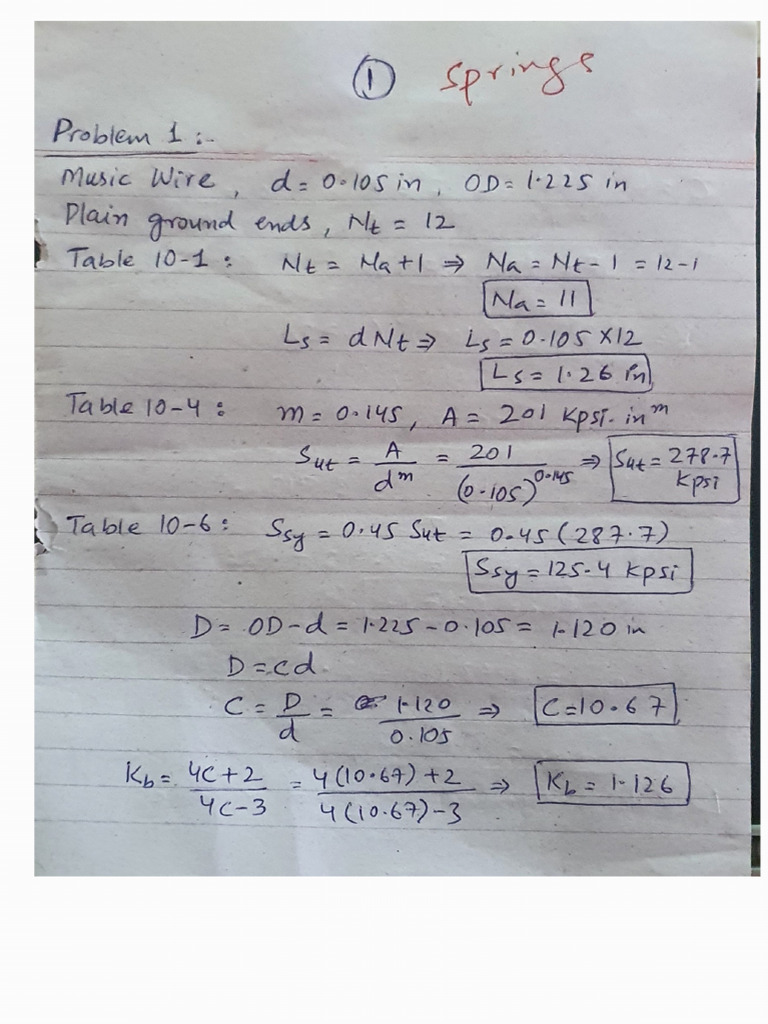 ① Springs
Problem 1 :-
Music Wire, d = 0.105 in, OD = 1.225 in
Plain ground ends, Nt = 12
Table 10-1 : Nt = Na+1 ⇒ Na = Nt - 1 = 12-1
Na = 11
Ls = d Nt ⇒ Ls = 0.105 × 12
Ls = 1.26 in
Table 10-4 : m = 0.145, A = 201 Kpsi. in^m
Sut = A/d^m = 201/(0.105)^0.145 ⇒ Sut = 278.7 Kpsi
Table 10-6 : Ssy = 0.45 Sut = 0.45 (287.7)
Ssy = 125.4 Kpsi
D = OD - d = 1.225 - 0.105 = 1.120 in
D = cd
C = D/d = 1.120/0.105 ⇒ C = 10.67
Kb = 4C+2/4C-3 = 4(10.67)+2/4(10.67)-3 ⇒ Kb = 1.126